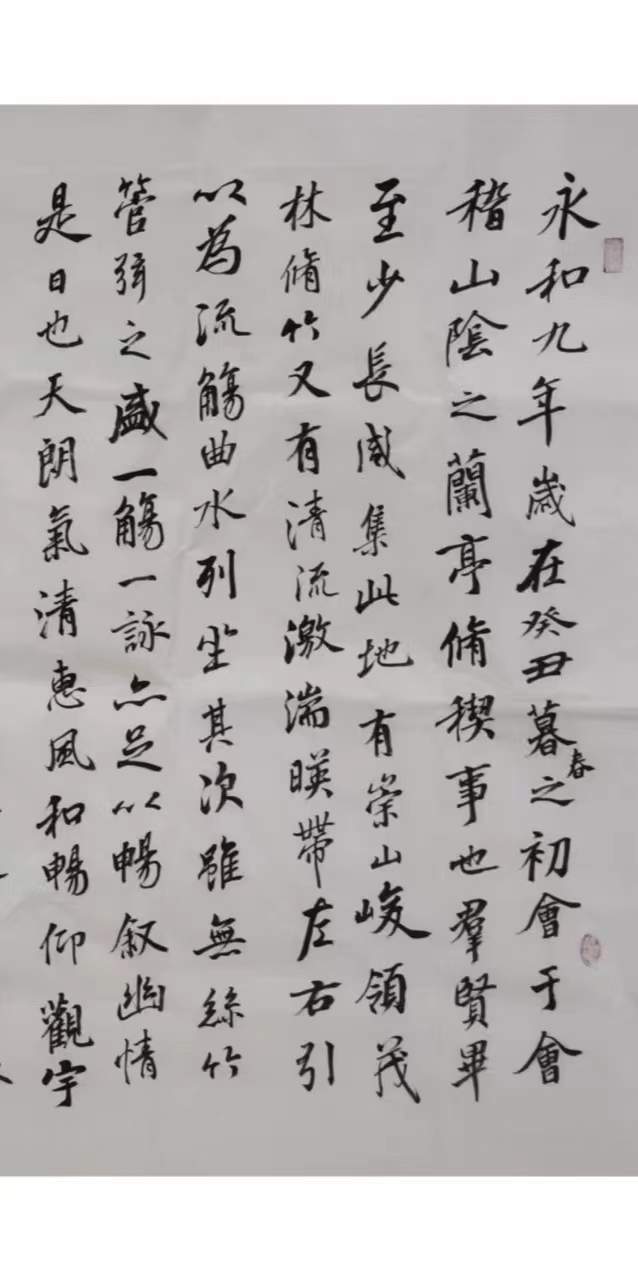 永和九年歲在癸丑暮春之初會于會
稽山陰之蘭亭脩稧事也羣賢畢
至少長咸集此地有崇山峻領茂
林脩竹又有清流激湍暎帶左右引
以為流觴曲水列坐其次雖無絲竹
管弦之盛一觴一詠亦足以暢叙幽情
是日也天朗氣清惠風和暢仰觀宇